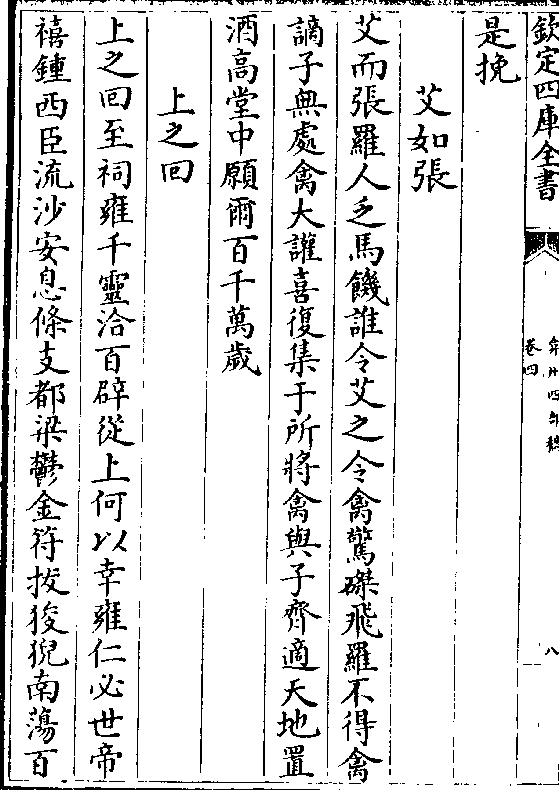 欽定四庫全書
弇州四部稿
卷四
八
是挽
艾如張
艾而張羅人乏馬饑誰令艾之令禽驚磔飛羅不得禽
謫子無處禽大讙喜復集于所將禽與子齊適天地置
酒高堂中願爾百千萬歲
上之回
上之回至祠雍千靈洽百辟從上何以幸雍仁必世帝
禧鍾西臣流沙安息條支都梁鬱金符拔狻猊南蕩百